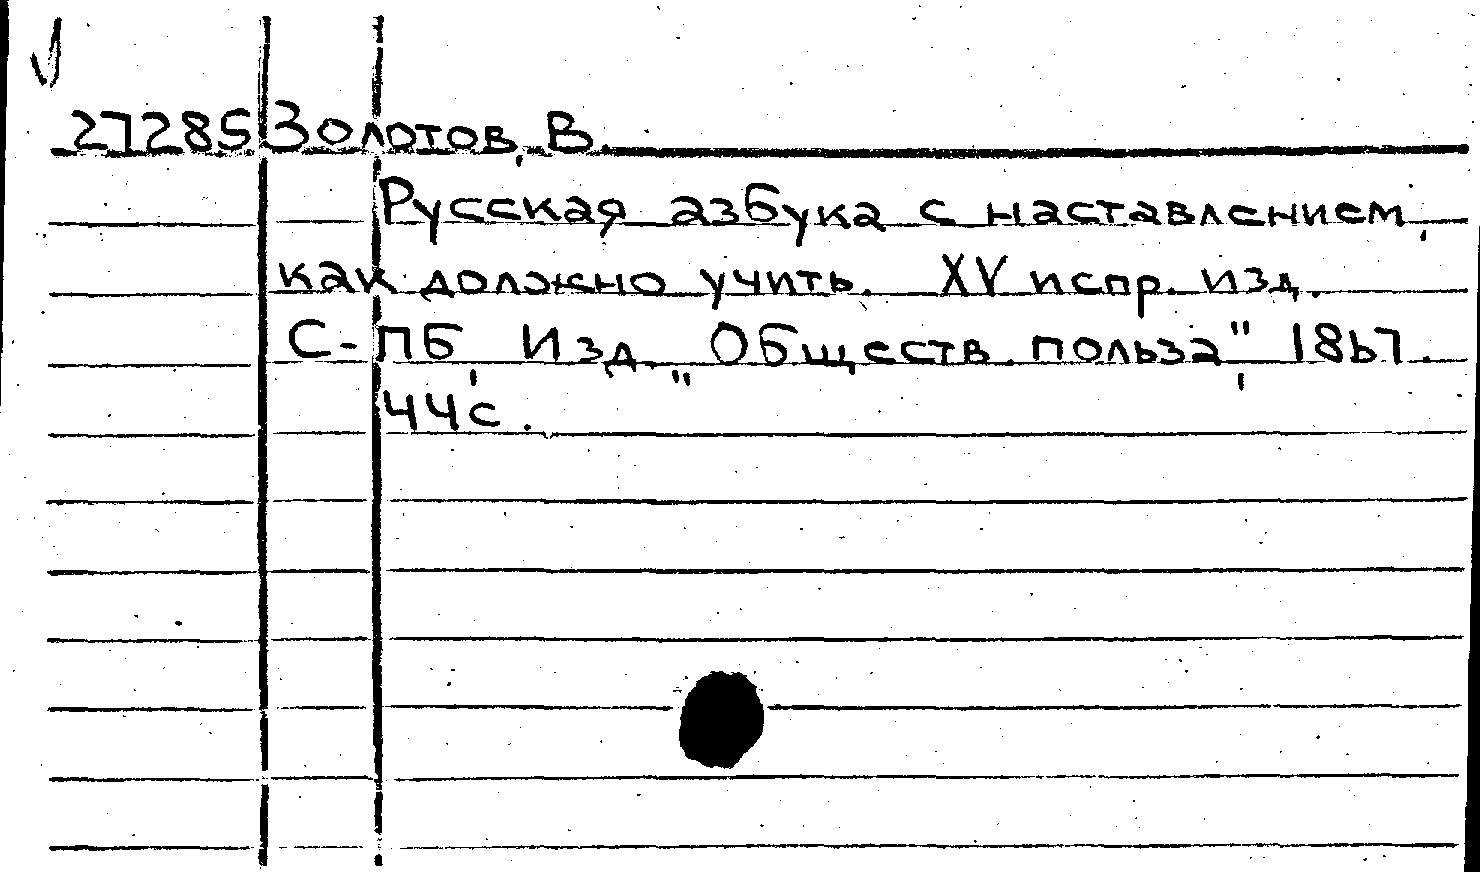 27285 Золотов, В.
Русская азбука с наставлением,
как должно учить. XV испр. изд.
С-ПБ, Изд. „Обществ. польза", 1867.
44с.